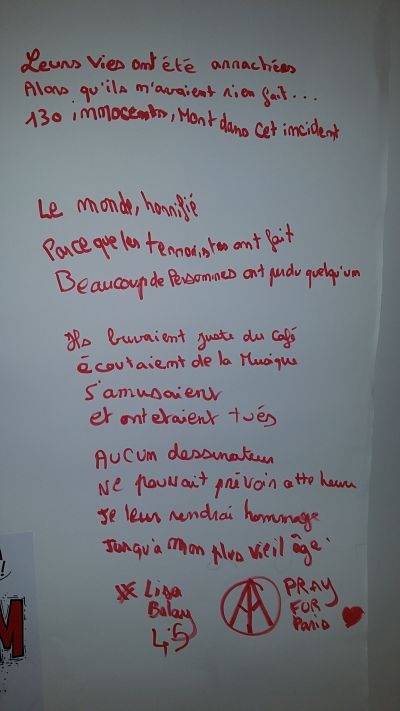 Leurs vies ont été arrachées
Alors qu'ils n'avaient rien fait...
130 innocents, Mont dans cet incident
Le monde, horrifié
Parce que les terroristes ont fait
Beaucoup de Personnes ont perdu quelqu'un
Ils buvaient juste du café
écoutaient de la Musique
S'amusaient
et ont etaient tués
Aucun dessinateur
Ne pouvait prévoir cette heure
Je leur rendrai hommage
Jusqu'à mon plus vieil âge.
Lisa
4.5
PRAY
FOR
Paris
M